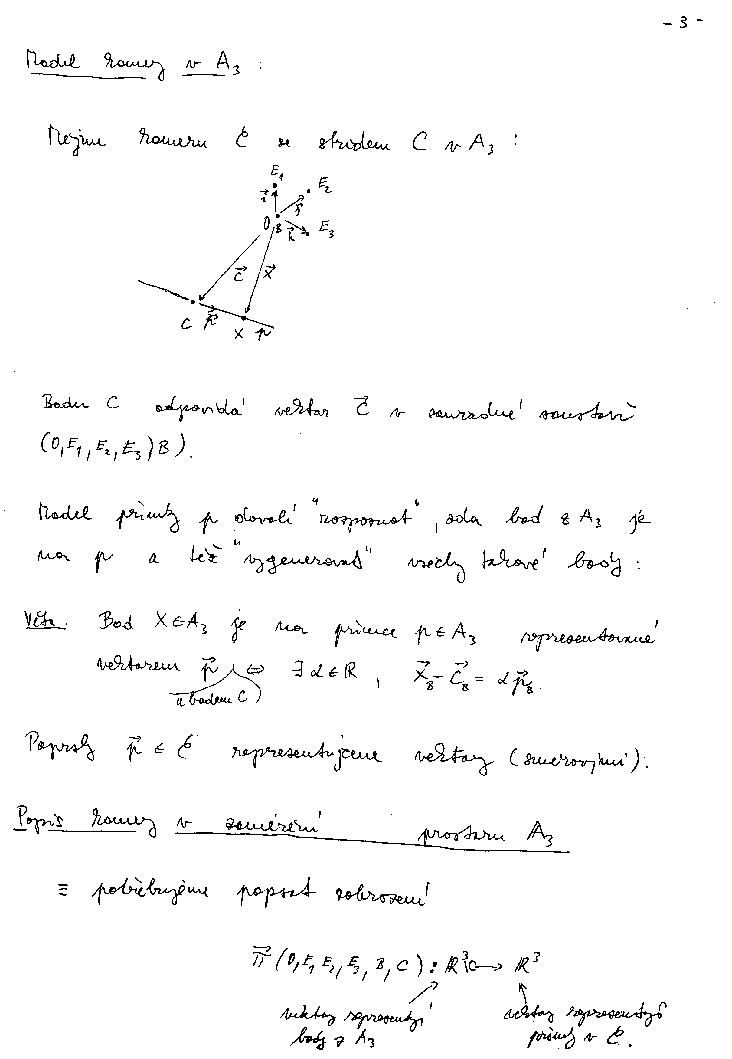 - 3 -
Model kamery v A₃ :
Mejme kameru C se středem C v A₃ :
E₁
E₂
O B
E₃
C⃗ X⃗
C p⃗ X p
Bodu C odpovídá vektor C⃗ v souradné soustavě
(O, E₁, E₂, E₃, B).
Model přímky p dovolí "rozpoznat", zda bod z A₃ je
na p a též "vygenerovat" všechy takové body :
Věta. Bod X ∈ A₃ je na přímce p ∈ A₃ representované
vektorem p⃗ ⇔ ∃ α ∈ R , X⃗_B - C⃗_B = α p⃗_B.
a bodem C
Paprsky p⃗ ∈ C representujeme vektory (směrovými).
Popis kamery v zaměření prostoru A₃
≡ potřebujeme popsat zobrazení
π⃗ (O, E₁, E₂, E₃, B, C) : R³\C → R³
vektory representují vektory representující
body z A₃ přímky v C.